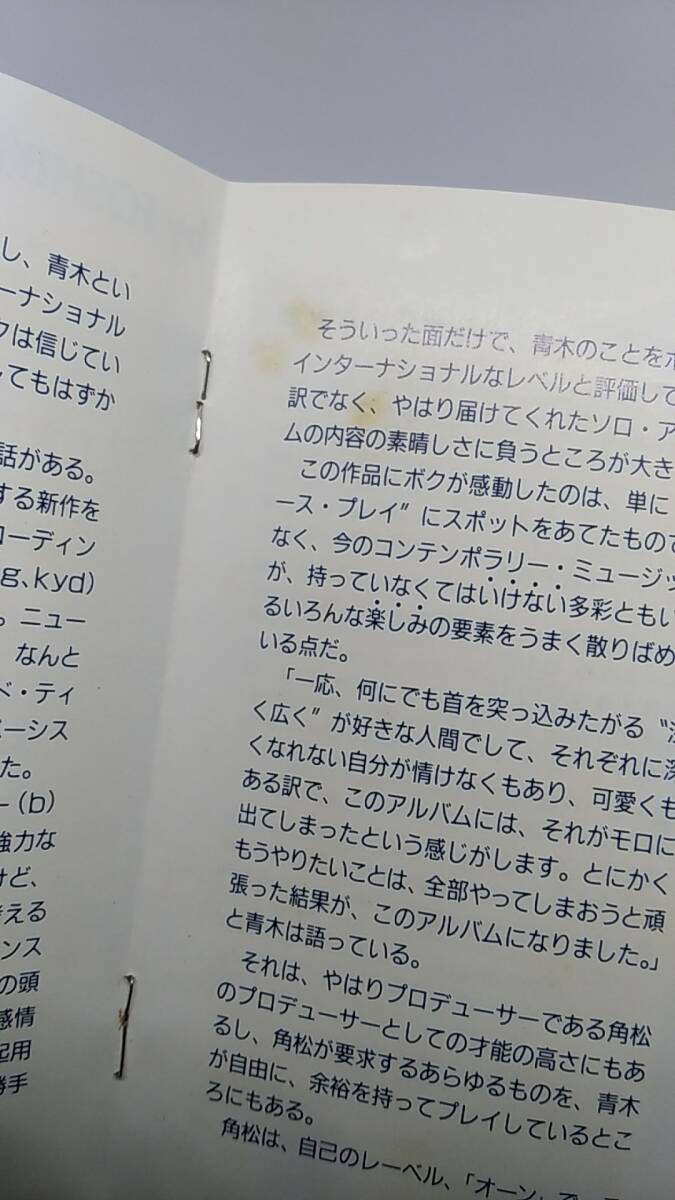 し、青木とい
ーナショナル
クは信じてい
てもはずか
話がある。
する新作を
コーディン
g、kyd)
。ニュー
なんと
ド・ティ
ベーシス
た。
ー(b)
強力な
けど、
考える
ンス
の頭
感情
起用
勝手
そういった面だけで、青木のことを
インターナショナルなレベルと評価して
訳でなく、やはり届けてくれたソロ・ア
ムの内容の素晴しさに負うところが大き
この作品にボクが感動したのは、単に
ース・プレイ〟にスポットをあてたもので
なく、今のコンテンポラリー・ミュージッ
が、持っていなくてはいけない多彩ともい
るいろんな楽しみの要素をうまく散りばめ
いる点だ。
「一応、何にでも首を突っ込みたがる〝
く広く〟が好きな人間でして、それぞれに深
くなれない自分が情けなくもあり、可愛くも
ある訳で、このアルバムには、それがモロに
出てしまったという感じがします。とにかく
もうやりたいことは、全部やってしまおうと頑
張った結果が、このアルバムになりました。」
と青木は語っている。
それは、やはりプロデューサーである角松
のプロデューサーとしての才能の高さにもあ
るし、角松が要求するあらゆるものを、青木
が自由に、余裕を持ってプレイしているとこ
ろにもある。
角松は、自己のレーベル、「オーン」で